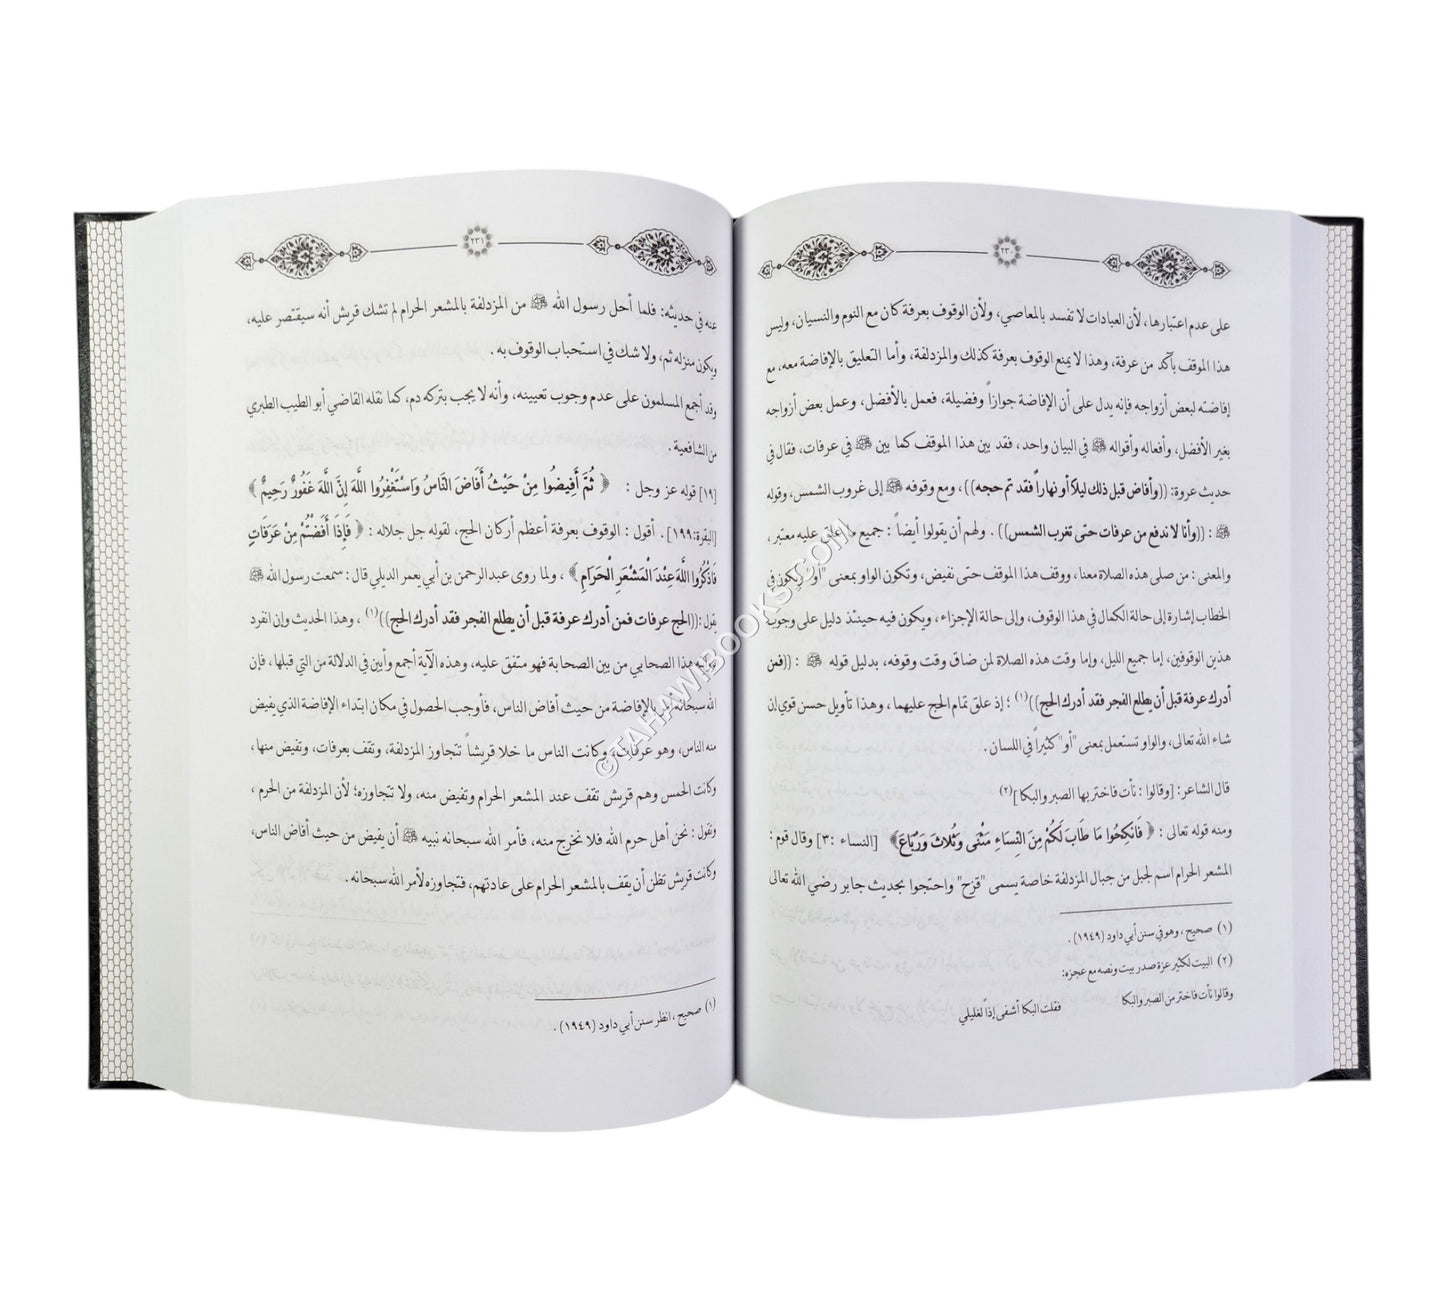 ٢٣٠
على عدم اعتبارها، لأن العبادات لا تفسد بالمعاصي، ولأن الوقوف بعرفة كان مع النوم والنسيان، وليس
هذا الموقف بآكد من عرفة، وهذا لا يمنع الوقوف بعرفة كذلك والمزدلفة، وأما التعليق بالإفاضة معه، مع
إفاضته لبعض أزواجه فإنه يدل على أن الإفاضة جوازاً وفضيلة، فعمل بالأفضل، وعمل بعض أزواجه
بغير الأفضل، وأفعاله وأقواله ﷺ في البيان واحد، فقد بين هذا الموقف كما بين ﷺ في عرفات، فقال في
حديث عروة: ((وأفاض قبل ذلك ليلاً أو نهاراً فقد تم حجه))، ومع وقوفه ﷺ إلى غروب الشمس، وقوله
ﷺ : ((وأنا لا ندفع من عرفات حتى تغرب الشمس)) . ولهم أن يقولوا أيضاً : جميع ما علق عليه معتبر ،
والمعنى : من صلى هذه الصلاة معنا، ووقف هذا الموقف حتى نفيض، وتكون الواو بمعنى "أو" ويكون في
الخطاب إشارة إلى حالة الكمال في هذا الوقوف، وإلى حالة الإجزاء، ويكون فيه حينئذ دليل على وجوب
هذين الوقوفين، إما جميع الليل، وإما وقت هذه الصلاة لمن ضاق وقت وقوفه، بدليل قوله ﷺ : ((فمن
أدرك عرفة قبل أن يطلع الفجر فقد أدرك الحج))(١) ؛ إذ علق تمام الحج عليهما، وهذا تأويل حسن قوي إن
شاء الله تعالى، والواو تستعمل بمعنى "أو" كثيراً في اللسان .
قال الشاعر: [وقالوا : نأت فاختر بها الصبر والبكا](٢)
ومنه قوله تعالى : ﴿ فَانْكِحُوا مَا طَابَ لَكُمْ مِنَ النِّسَاءِ مَثْنَى وَثُلَاثَ وَرُبَاعَ﴾ [النساء :٣] وقال قوم :
المشعر الحرام اسم لجبل من جبال المزدلفة خاصة يسمى "قزح" واحتجوا بحديث جابر رضي الله تعالى
(١) صحيح ، وهو في سنن أبي داود (١٩٤٩) .
(٢) البيت لكثير عزة صدر بيت ونصه مع عجزه:
وقالوا نأت فاختر من الصبر والبكا فقلت البكا أشفى إذاً لغليلي
٢٣١
عنه في حديثه: فلما أحل رسول الله ﷺ من المزدلفة بالمشعر الحرام لم تشك قريش أنه سيقتصر عليه،
ويكون منزله ثم، ولا شك في استحباب الوقوف به .
وقد أجمع المسلمون على عدم وجوب تعيينه، وأنه لا يجب بتركه دم، كما نقله القاضي أبو الطيب الطبري
من الشافعية .
[١٩] قوله عز وجل : ﴿ ثُمَّ أَفِيضُوا مِنْ حَيْثُ أَفَاضَ النَّاسُ وَاسْتَغْفِرُوا اللَّهَ إِنَّ اللَّهَ غَفُورٌ رَحِيمٌ ﴾
[البقرة:١٩٩] . أقول : الوقوف بعرفة أعظم أركان الحج، لقوله جل جلاله : ﴿ فَإِذَا أَفَضْتُمْ مِنْ عَرَفَاتٍ
فَاذْكُرُوا اللَّهَ عِنْدَ الْمَشْعَرِ الْحَرَامِ﴾ ، ولما روى عبد الرحمن بن أبي يعمر الديلي قال : سمعت رسول الله ﷺ
يقول :((الحج عرفات فمن أدرك عرفة قبل أن يطلع الفجر فقد أدرك الحج))(١) ، وهذا الحديث وإن انفرد
بروايته هذا الصحابي من بين الصحابة فهو متفق عليه، وهذه الآية أجمع وأبين في الدلالة من التي قبلها، فإن
الله سبحانه أمر بالإفاضة من حيث أفاض الناس، فأوجب الحصول في مكان ابتداء الإفاضة الذي يفيض
منه الناس، وهو عرفات، وكانت الناس ما خلا قريشاً تتجاوز المزدلفة، وتقف بعرفات، وتفيض منها،
وكانت الحمس وهم قريش تقف عند المشعر الحرام وتفيض منه، ولا تتجاوزه؛ لأن المزدلفة من الحرم ،
وتقول : نحن أهل حرم الله فلا نخرج منه، فأمر الله سبحانه نبيه ﷺ أن يفيض من حيث أفاض الناس،
وكانت قريش تظن أن يقف بالمشعر الحرام على عادتهم، فتجاوزه لأمر الله سبحانه .
(١) صحيح ، انظر سنن أبي داود (١٩٤٩) .
©TAHAWIBOOKS.COM